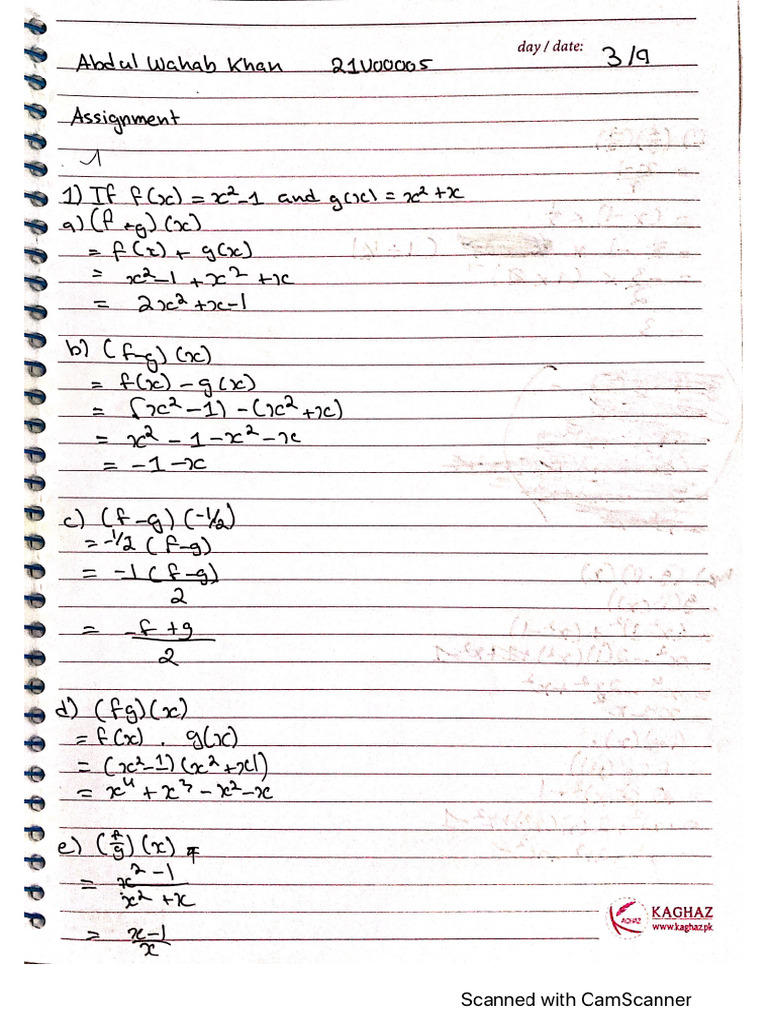 day / date:
Abdul Wahab Khan 21U00005 3/9
Assignment
1
1) If f(x) = x²-1 and g(x) = x²+x
a) (f+g)(x)
= f(x) + g(x)
= x²-1 + x² + x
= 2x² + x-1
b) (f-g)(x)
= f(x) - g(x)
= (x²-1) - (x²+x)
= x² - 1 - x² - x
= -1 - x
c) (f-g)(-1/2)
= -1/2 (f-g)
= -1(f-g)
2
= -f + g
2
d) (fg)(x)
= f(x) . g(x)
= (x²-1)(x²+x)
= x⁴ + x³ - x² - x
e) (f/g)(x)
= x² - 1
x² + x
= x-1
x
KAGHAZ
www.kaghaz.pk
Scanned with CamScanner